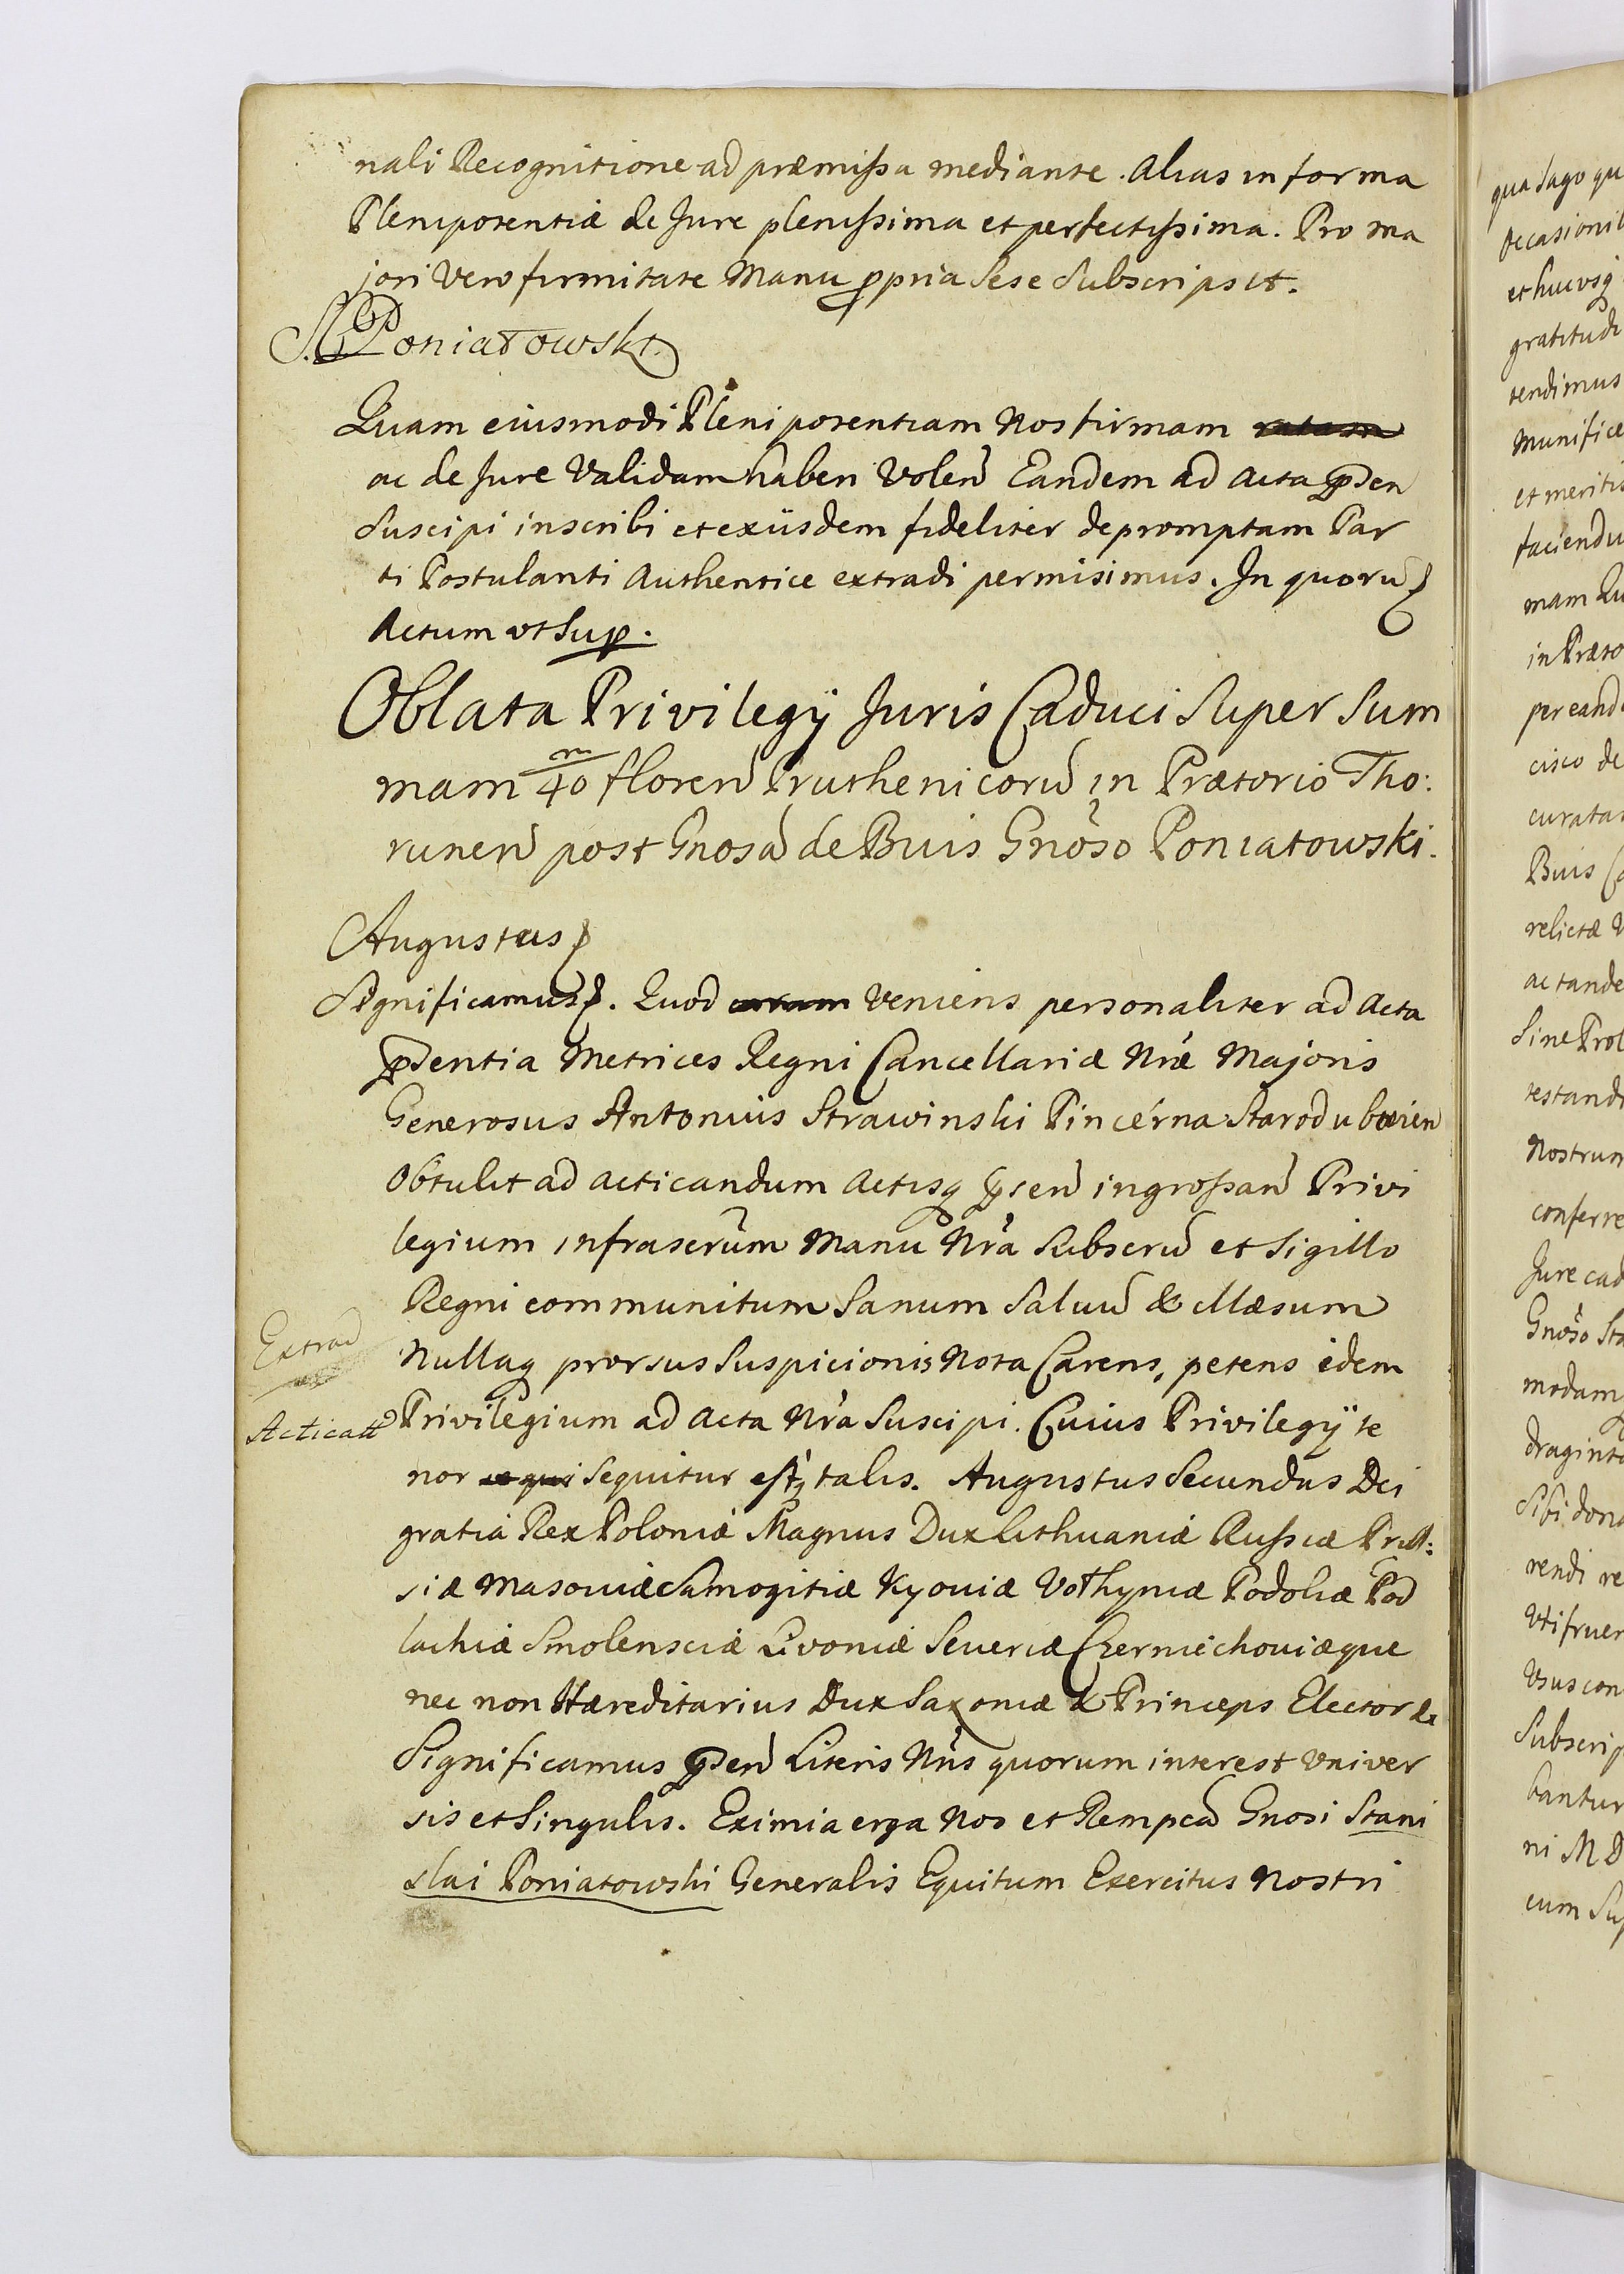 nali Recognitione ad præmissa mediante. Alias in forma
Plenipotentiæ de Jure plenissima et perfectissima. Pro ma
jori vero firmitate Manu ppria Sese Subscripsit.
S. Poniatowski.
Quam eiusmodi Plenipotentiam Nos firmam ratam
ac de Jure Validam haberi Volen Eandem ad Acta pden
Suscipi inscribi et exiisdem fideliter depromptam Par
ti Postulanti Authentice extradi permisimus. In quoru
Actum ut Sup.
Oblata Privilegÿ Juris Caduci Super Sum
mam 40 m floren Pruthenicoru in Prætorio Tho:
runen post Gnosa de Buis Gnoso Poniatowski.
Augustus
Significamus. Quod coram Veniens personaliter ad Acta
pdentia Metrices Regni Cancellariæ Nræ Majoris
Generosus Antonius Strawinski Pincerna Starodubovien
Obtulit ad acticandum Actisq psen ingrossan Privi
legium infrascrum Manu Nra Subscru et Sigillo
Regni communitum Sanum Saluu & illæsum
Extrad
Nullaq prorsus Suspicionis Nota Carens, petens idem
Acticatt
Privilegium ad Acta Nra Suscipi. Cuius Privilegÿ te
nor sequitur estq talis. Augustus Secundus Dei
gratia Rex Poloniæ Magnus Dux Lithuaniæ Russiæ Prus:
siæ Masoviæ Samogitiæ Kyoviæ Volhyniæ Podoliæ Pod
lachiæ Smolensciæ Livoniæ Severiæ Czerniechoviæque
nec non Hæreditarius Dux Saxoniæ & Princeps Elector &
Significamus pden Literis Nris quorum interest Univer
sis et Singulis. Eximia erga Nos et Rempca Gnosi Stani
slai Poniatowski Generalis Equitum Exercitus Nostri
qua sago qu
Occasionib
et hucusq
gratitudi
tendimus
Munificæ
et meritis
faciendu
mam Qu
in Præto
per eand
cisco de
curatas
Buis
relictæ
ac tande
Sine Prol
testand
Nostrum
conferre
Jure cad
Gnoso Sta
modam
draginta
Sibi dona
rendi re
Utifruen
Usus con
Subscrip
bantur
ni M D
cum Su